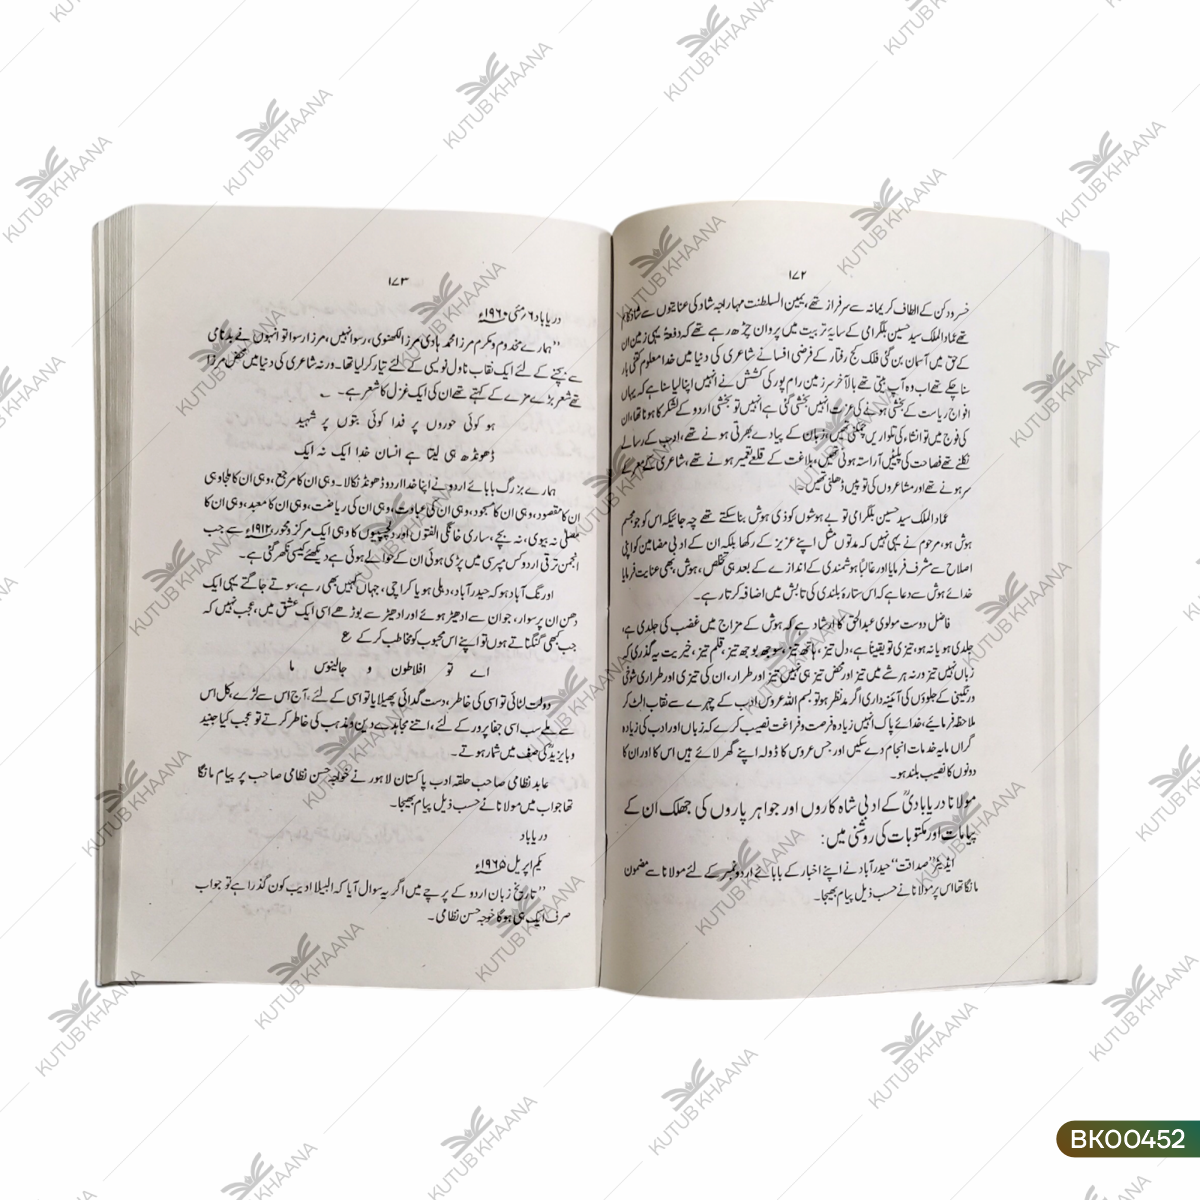 ۱۷۲
خسرو دکن کے الطاف کریمانہ سے سرفراز تھے، یمین السلطنت مہاراجہ شاد کی عنایتوں سے شاد کام
تھے عماد الملک سید حسین بلگرامی کے سایۂ تربیت میں پروان چڑھ رہے تھے کہ دفعۃً یہی زمین ان
کے حق میں آسمان بن گئی فلک کج رفتار کے فرضی افسانے شاعری کی دنیا میں خدا معلوم کتنی بار
سنا چکے تھے اب وہ آپ بیتی تھے بالآخر سرزمین رام پور کی کشش نے انہیں اپنا لیا سنا ہے کہ یہاں
افواج ریاست کے بخشی ہونے کی عزت انہیں بخشی گئی ہے انہیں تو بخشی اردو کے لشکر کا ہونا تھا، ان
کی فوج میں تو انشاء کی تلواریں چمکتی تھیں، زبان کے پیادے بھرتی ہونے تھے، ادب کے رسالے
نکلنے تھے فصاحت کی پلٹنیں آراستہ ہوئی تھیں، بلاغت کے قلعے تعمیر ہونے تھے، شاعری کے معرکے
سر ہونے تھے اور مشاعروں کی توپیں ڈھلنی تھیں۔
عماد الملک سید حسین بلگرامی تو بے ہوشوں کو ذی ہوش بنا سکتے تھے چہ جائیکہ اس کو جو مجسم
ہوش ہو، مرحوم نے یہی نہیں کہ مدتوں مثل اپنے عزیز کے رکھا بلکہ ان کے ادبی مضامین کو اپنی
اصلاح سے مشرف فرمایا اور غالباً ہوشمندی کے اندازے کے بعد ہی تخلص، ہوش بھی عنایت فرمایا
خدائے ہوش سے دعا ہے کہ اس ستارۂ بلندی کی تابش میں اضافہ کرتا رہے۔
فاضل دوست مولوی عبدالحق کا ارشاد ہے کہ ہوش کے مزاج میں غضب کی جلدی ہے،
جلدی ہو یا نہ ہو، تیزی تو یقیناً ہے، دل تیز، ہاتھ تیز، سوجھ بوجھ تیز، قلم تیز، خیریت یہ گذری کہ
زباں نہیں تیز ورنہ ہر شے میں تیز اور محض تیز ہی نہیں تیز اور طرار، ان کی تیزی اور طراری شوخی
ورنگینی کے جلوؤں کی آئینہ داری اگر مدنظر ہو تو بسم اللہ عروس ادب کے چہرے سے نقاب الٹ کر
ملاحظہ فرمائیے، خدائے پاک انہیں زیادہ فرصت و فراغت نصیب کرے کہ زباں اور ادب کی زیادہ
گراں مایہ خدمات انجام دے سکیں اور جس عروس کا ڈولہ اپنے گھر لائے ہیں اس کا اور ان کا
دونوں کا نصیب بلند ہو۔
مولانا دریابادیؒ کے ادبی شاہ کاروں اور جواہر پاروں کی جھلک ان کے
پیامات اور مکتوبات کی روشنی میں:
ایڈیٹر "صداقت" حیدرآباد نے اپنے اخبار کے بابائے اردو نمبر کے لئے مولانا سے مضمون
مانگا تھا اس پر مولانا نے حسب ذیل پیام بھیجا۔
۱۷۳
دریاباد ۶ مئی ۱۹۶۰ء
"ہمارے مخدوم و مکرم مرزا محمد ہادی مرزا لکھنوی، رسوا نہیں، مرزا رسوا تو انہوں نے بدنامی
سے بچنے کے لئے ایک نقاب ناول نویسی کے لئے تیار کر لیا تھا۔ ورنہ شاعری کی دنیا میں محض مرزا
تھے شعر بڑے مزے کے کہتے تھے ان کی ایک غزل کا شعر ہے۔
ہو کوئی حوروں پر فدا کوئی بتوں پر شہید
ڈھونڈھ ہی لیتا ہے انسان خدا ایک نہ ایک
ہمارے بزرگ بابائے اردو نے اپنا خدا اردو ڈھونڈ نکالا۔ وہی ان کا مرجع، وہی ان کا ملجا وہی
ان کا مقصود، وہی ان کا مسجود، وہی ان کی عبادت، وہی ان کی ریاضت، وہی ان کا معبد، وہی ان کا
مصلیٰ نہ بیوی، نہ بچے، ساری خانگی الفتوں اور دلچسپیوں کا وہی ایک مرکز و محور، ۱۹۱۲ء سے جب
انجمن ترقی اردو کس مپرسی میں پڑی ہوئی ان کے حوالے ہوئی ہے دیکھئے کیسی نکھر گئی ہے۔
اورنگ آباد ہو کہ حیدرآباد، دہلی ہو یا کراچی، جہاں کہیں بھی رہے، سوتے جاگتے یہی ایک
دھن ان پر سوار، جوان سے ادھیڑ ہوئے اور ادھیڑ سے بوڑھے اسی ایک عشق میں، عجب نہیں کہ
جب کبھی گنگناتے ہوں تو اپنے اس محبوب کو مخاطب کر کے ع
اے تو افلاطون و جالینوس ما
دولت لٹائی تو اسی کی خاطر، دست گدائی پھیلایا تو اسی کے لئے، آج اس سے لڑے، کل اس
سے ملے سب اسی جفا پرور کے لئے، اتنے مجاہدے دین و مذہب کی خاطر کرتے تو عجب کیا جنید
و بایزید کی صف میں شمار ہوتے۔
عابد نظامی صاحب حلقہ ادب پاکستان لاہور نے خواجہ حسن نظامی صاحب پر پیام مانگا
تھا جواب میں مولانا نے حسب ذیل پیام بھیجا۔
دریاباد
یکم اپریل ۱۹۶۵ء
"تاریخ زبان اردو کے پرچے میں اگر یہ سوال آیا کہ البیلا ادیب کون گذرا ہے تو جواب
صرف ایک ہی ہوگا خوجہ حسن نظامی۔
KUTUB KHAANA
BK00452